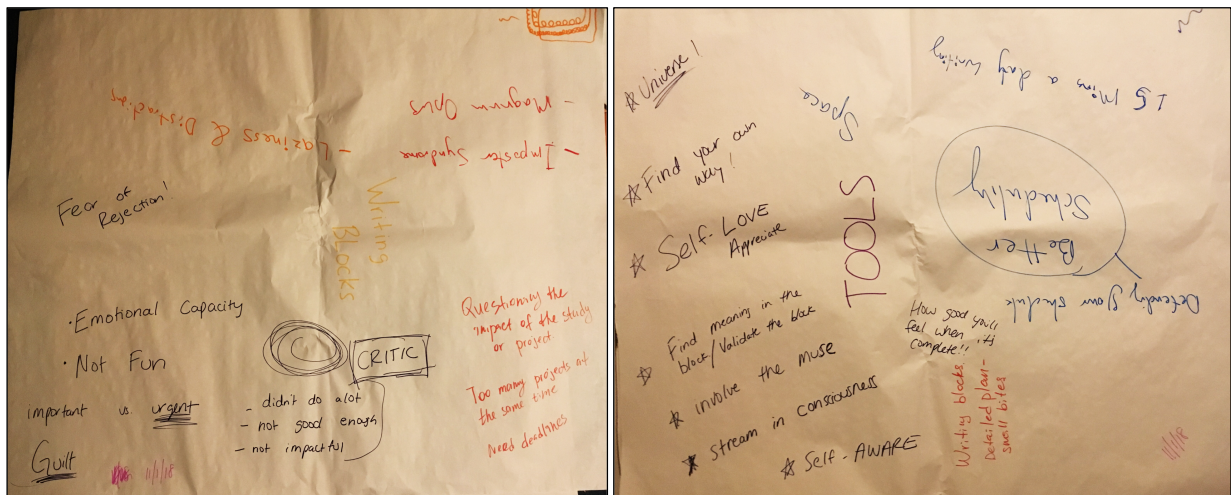 - Magnum Opus
- Imposter Syndrome
- Laziness & Distractions
Fear of
Rejection!
Writing
Blocks
· Emotional Capacity
· Not Fun
important vs. urgent
Guilt
CRITIC
- didn't do alot
- not good enough
- not impactful
Questioning the
impact of the study
or project
Too many projects at
the same time
Need deadlines
11/1/18
Universe!
Find your own
way!
Self-LOVE
Appreciate
Find meaning in the
block/Validate the block
involve the muse
stream in consciousness
Self-AWARE
Space
TOOLS
15 Mins a day writing
Better
Scheduling
Defending your schedule
How good you'll
feel when it's
complete!!
Writing blocks
Detailed plan -
small bites
11/1/18